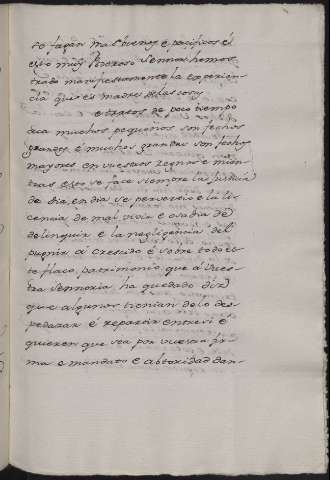 se fagan mas buenos e pacificos é
esto muy Poderoso Sennor hemos
trado manifiestamente la esperien
cia que es madre de las cosas
e debaxos de poco tiempo
acá muchos pequenos son fechos
grandes é muchos grandes son fechos
mayores en vuestros Regnos e mien
tras esto se face siempre la justicia
de dia, en dia se pervierte e la li
cencia de mal vivir e osadia de
delinquir e la negligencia del
pugnir á crescido é sobre todo es
te flaco, patrimonio, que á Vues
tra Sennoria ha quedado diz
que algunos tienian de lo des
pedazar é repartir entre si é
quieren que sea por vuestra fir
ma e mandato e abtoridad dan-